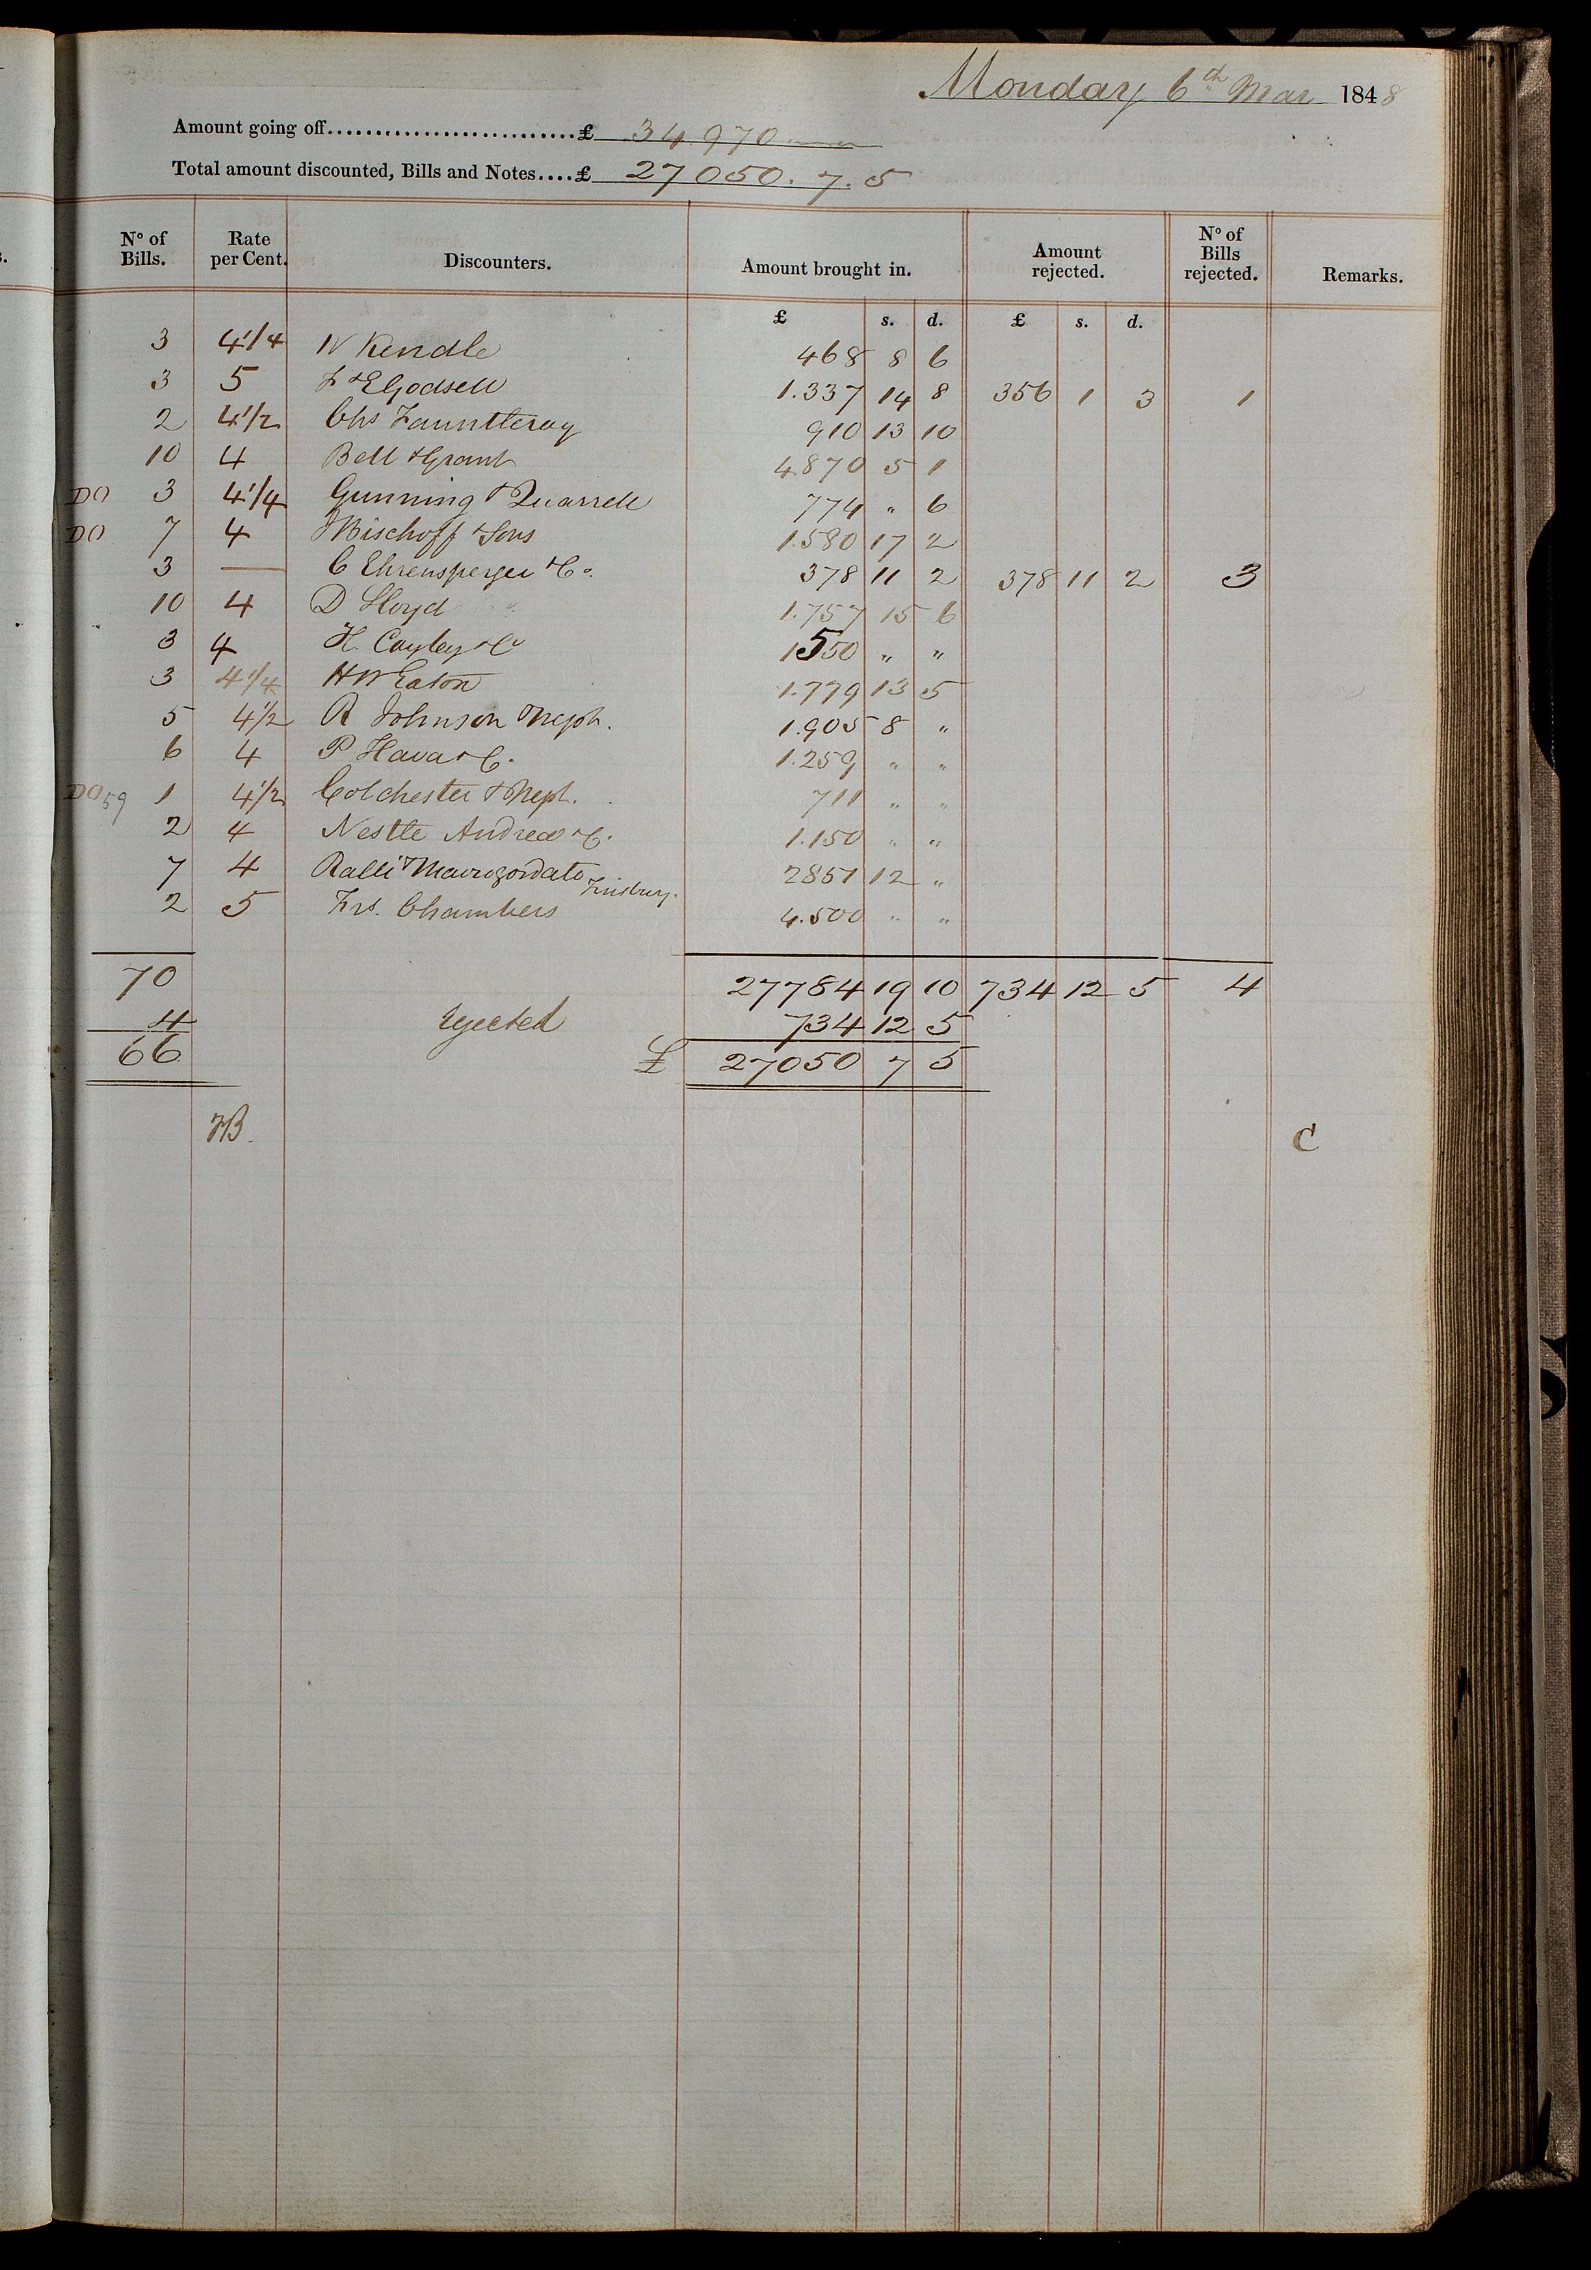 Monday 6th Mar 1848
Amount going off..........................£ 34.970
Total amount discounted, Bills and Notes....£ 27050. 7. 5
No of Bills. Rate per Cent. Discounters. Amount brought in. Amount rejected. No of Bills rejected. Remarks.
£ s. d. £ s. d.
3 4 1/4 W Kendle 468 8 6
3 5 & E Godsell 1.337 14 8 356 1 3 1
2 4 1/2 Chs Fauntleroy 910 13 10
10 4 Bell & Grant 4.870 5 1
DO 3 4 1/4 Gunning & Quarrell 774 " 6
DO 7 4 J Bischoff & Sons 1.580 17 2
3 — C Ehrensperger & Co. 378 11 2 378 11 2 3
10 4 D Lloyd 1.757 15 6
3 4 H. Cayley & Co 1550 " "
3 4 1/4 H W Eaton 1.779 13 5
5 4 1/2 R Johnson & Neph. 1.905 8 "
6 4 P Hava & C. 1.259 " "
DO 59 1 4 1/2 Colchester & Neph. 711 " "
2 4 Nestle Andrea & C. 1.150 " "
7 4 Ralli & Mavrogordato Finsbury. 2851 12 "
2 5 Frs. Chambers 4.500 " "
70 27784 19 10 734 12 5 4
4 rejected 734 12 5
66 £ 27050 7 5
C